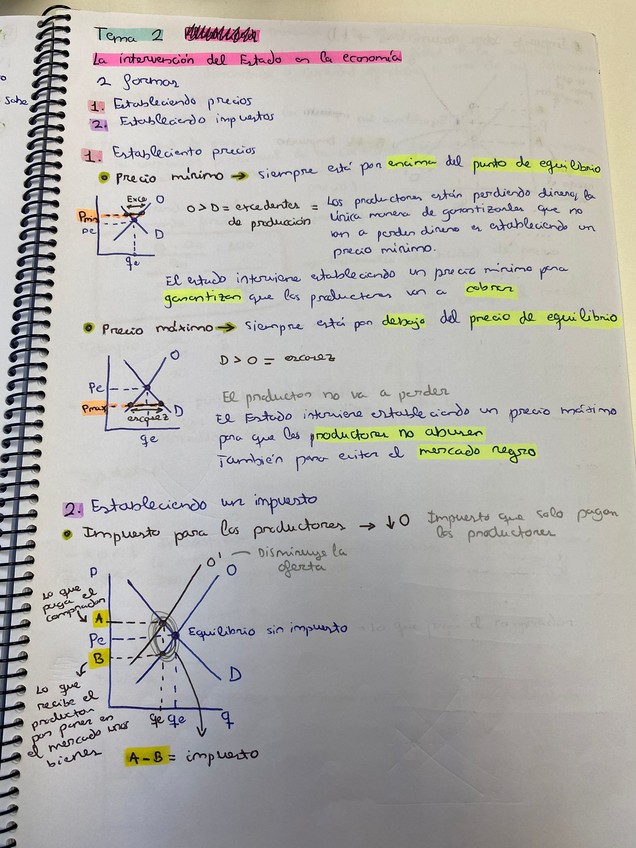 Tema 2
La intervención del Estado en la economía
2 formas
1. Estableciendo precios
2. Estableciendo impuestos
1. Estableciento precios
Precio mínimo → siempre está por encima del punto de equilibrio
Exce O
Pmin
Pe
D
qe
O > D = excedentes = Los productores están perdiendo dinero, la
de producción única manera de garantizarles que no
van a perder dinero es estableciendo un
precio mínimo.
El estado interviene estableciendo un precio mínimo para
garantizar que los productores van a cobrar
Precio máximo → siempre está por debajo del precio de equilibrio
O
Pe
Pmax
escasez D
qe
D > O = escasez
El productor no va a perder
El Estado interviene estableciendo un precio máximo
para que los productores no abusen
También para evitar el mercado negro
2. Estableciendo un impuesto
Impuesto para los productores → ↓ O Impuesto que solo pagan
los productores
O' — Disminuye la
oferta
P O
Lo que
paga el
comprador
A
Pe Equilibrio sin impuesto
B
Lo que
recibe el
productor
por poner en
el mercado unos
bienes
D
qe qe q
A - B = impuesto
sabe